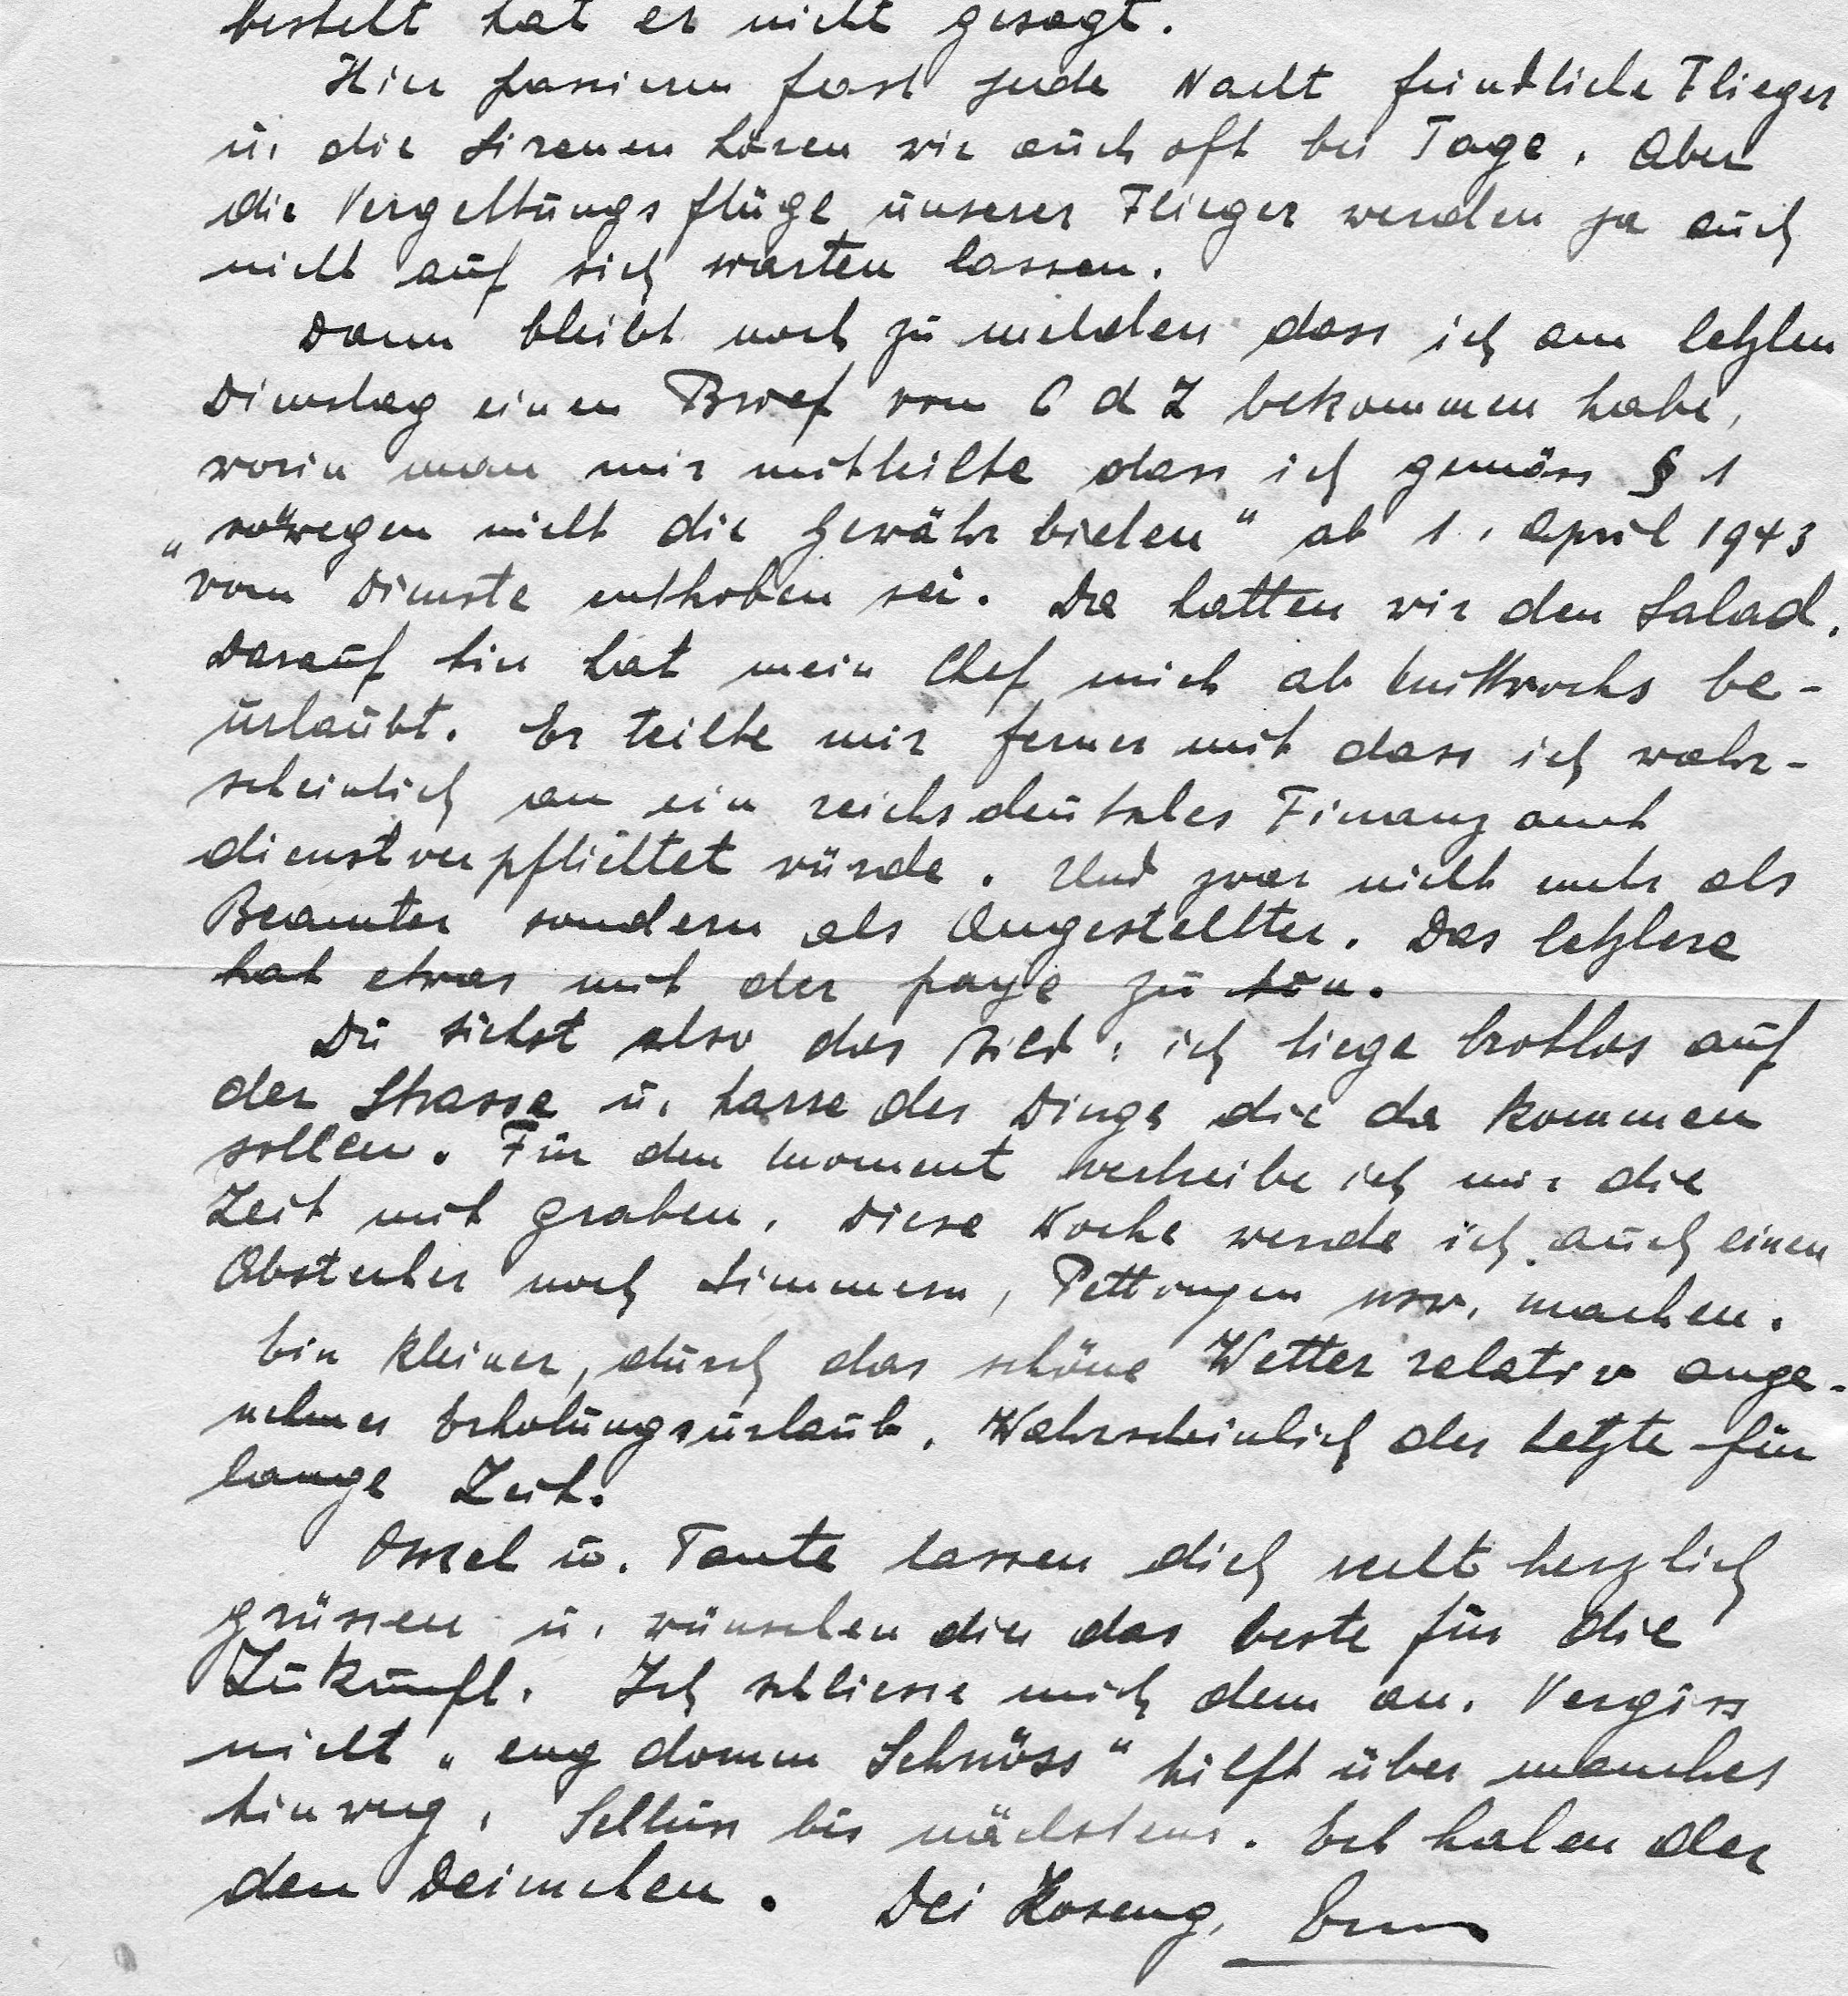 bestellt hat er nicht gesagt.
Hier passieren fast jede Nacht feindliche Flieger
u. die Sirenen hören wir auch oft bei Tage. Aber
die Vergeltungsflüge unserer Flieger werden ja auch
nicht auf sich warten lassen.
Dann bleibt noch zu melden dass ich am letzten
Dienstag einen Brief vom C d Z bekommen habe,
worin man mir mitteilte dass ich gemäss § 1
„wegen nicht die Gewähr bieten" ab 1. April 1943
vom Dienste enthoben sei. Da hatten wir den Salad.
Darauf hin hat mein Chef mich ab Mittwochs be-
urlaubt. Er teilte mir ferner mit dass ich wahr-
scheinlich an ein reichsdeutsches Finanzamt
dienstverpflichtet würde. Und zwar nicht mehr als
Beamter sondern als Angestellter. Das letztere
hat etwas mit der paye zu tun.
Du siehst also das Bild: ich liege brotlos auf
der Strasse u. harre der Dinge die da kommen
sollen. Für den Moment vertreibe ich mir die
Zeit mit graben. Diese Woche werde ich auch einen
Abstecher nach Simmern, Pettingen usw. machen.
Ein kleiner, durch das schöne Wetter relativ ange-
nehmer Erholungsurlaub. Wahrscheinlich der letzte für
lange Zeit.
Onkel u. Tante lassen dich recht herzlich
grüssen u. wünschen dir das beste für die
Zukunft. Ich schliesse mich dem an. Vergiss
nicht „eng domm Schnöss" hilft über manches
hinweg. Schluss bis nächstens. Ech halen der
den Deimchen. Dei Koseng,